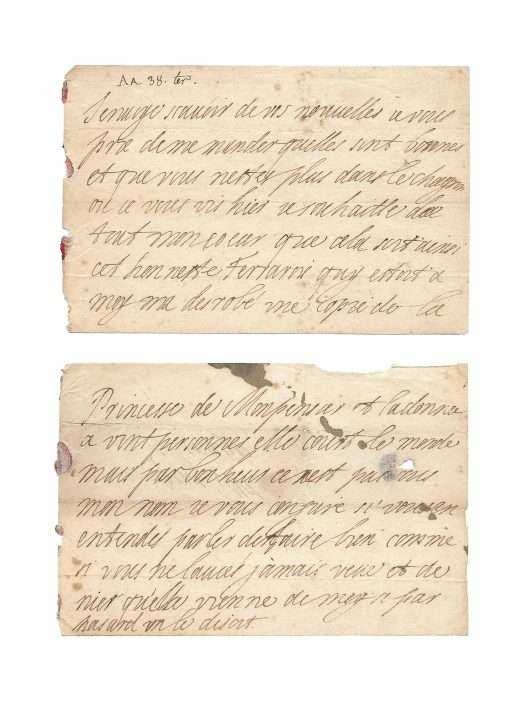 AA 38. ter.
Jenvoye scavoir de vos nouvelles a vous
prie de me mander quelles sont bonnes
et que vous nestes plus dans le chagrin
ou ie vous vis hier ie souhaitte de
tout mon coeur que cela soit ainsi
cet honneste Ferrarois quy estoit a
moy ma desrobé une copie de la
Princesse de Monpensier et la donnee
a vint personnes elle court le monde
mais par bonheur ce nest pas sous
mon nom ie vous coniure si vous en
entendes parler de faire bien comme
si vous ne lauies jamais veue et de
nier quelle vienne de moy si par
hasard on le disoit.